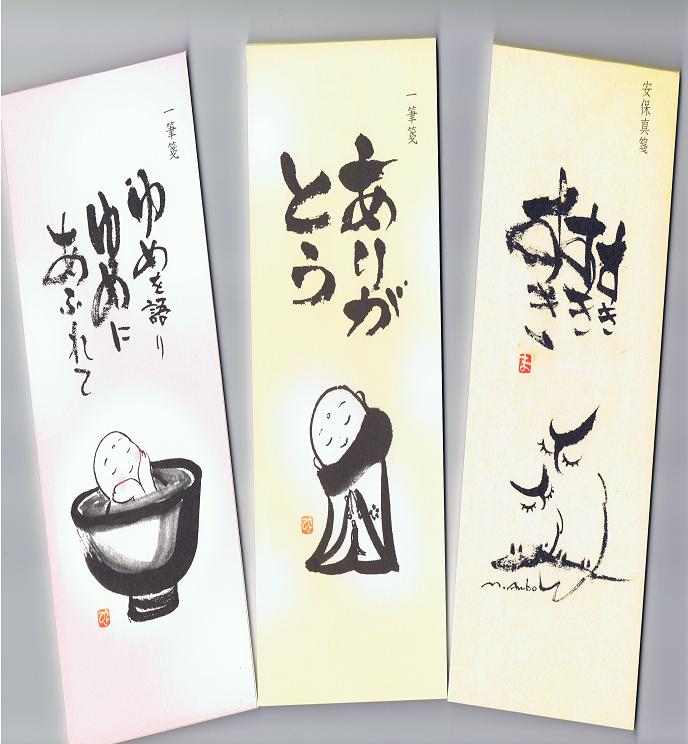 一筆箋
ゆめを語り
ゆめに
あふれて
一筆箋
ありが
とう
安保真箋
ま